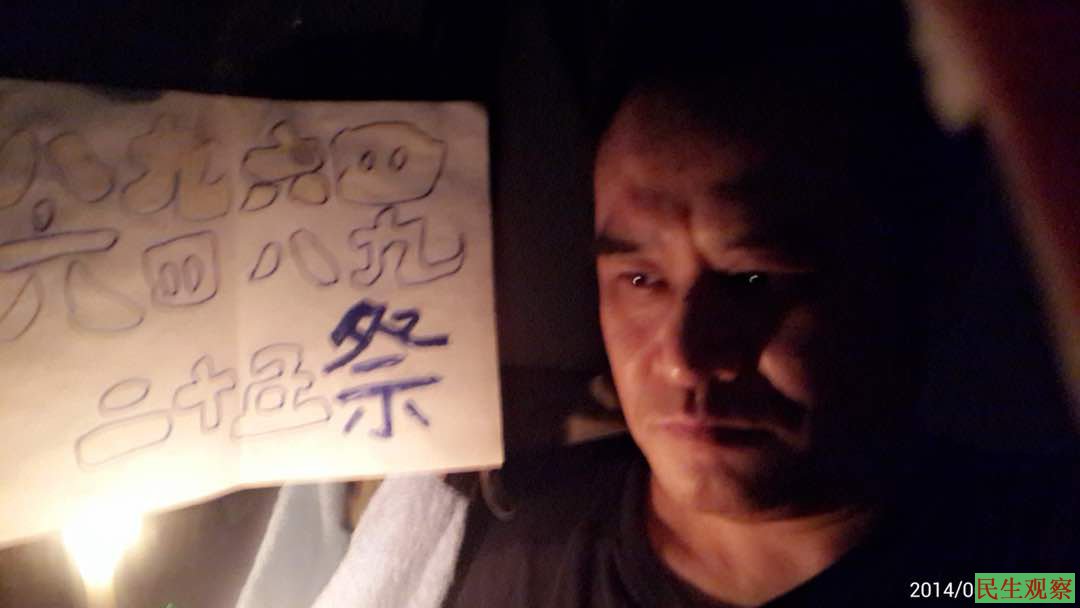 八九六四
六四八九
二十五祭
2014/0
民生观察